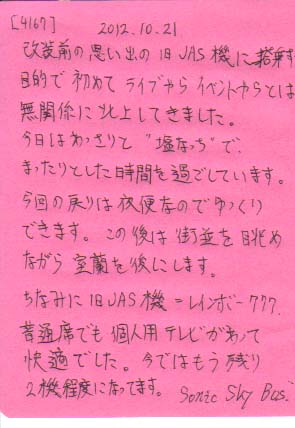 [4167] 2012.10.21
改装前の思い出の旧JAS機に搭乗す
目的で初めてライブやらイベントやらとは
無関係に北上してきました。
今日はあっさりと "塩なっち" で、
まったりとした時間を過ごしています。
今回の戻りは夜便なのでゆっくり
できます。この後は街並を眺め
ながら室蘭を後にします。
ちなみに旧JAS機=レインボー777.
普通席でも個人用テレビがあって
快適でした。今ではもう残り
2機程度になってます。 Sonic Sky Bus.